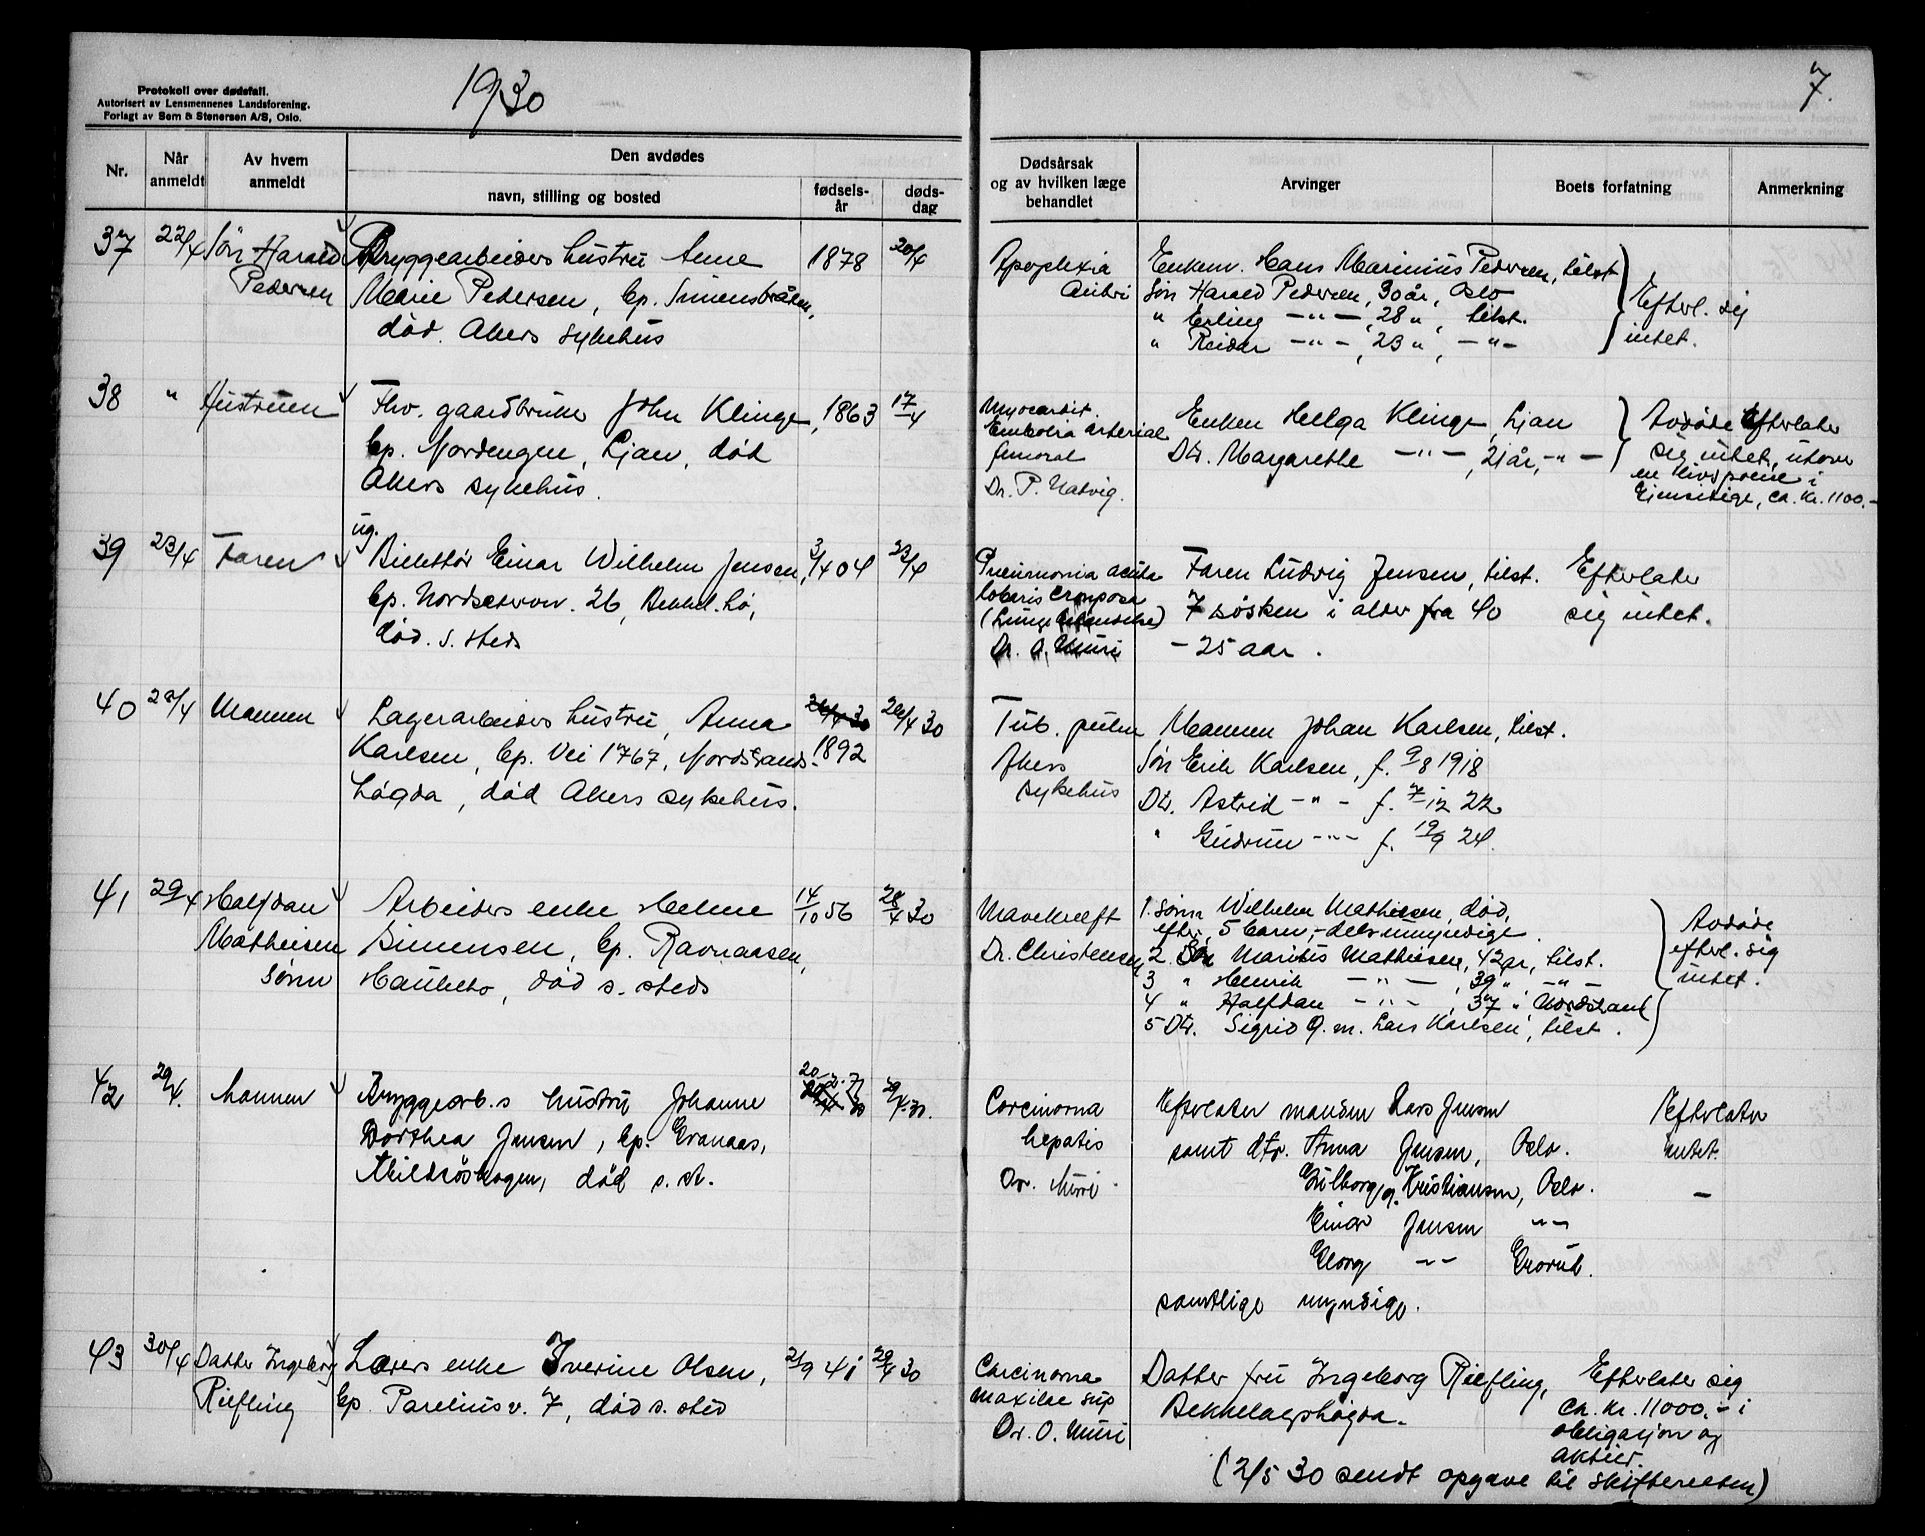 Protokoll over dødsfall.
Autorisert av Lensmennenes Landsforening.
Forlagt av Sem & Stenersen A/S, Oslo.
1930
7.
Nr.
Når anmeldt
Av hvem anmeldt
Den avdødes
navn, stilling og bosted
fødsels-år
døds-dag
Dødsårsak og av hvilken læge behandlet
Arvinger
Boets forfatning
Anmerkning
37 22/4 Søn Harald Bryggearbeiders hustru Anne 1878 20/4
Pedersen Marie Pedersen, bp. Simensbråten,
død. Akers sykehus
Apoplexia Enkem. Hans Marinius Pedersen, tilst
Søn Harald Pedersen, 30 år, Oslo
" Erling -"-, 28 ", tilst.
" Reidar -"-, 23 ", -"-
Efterl. sig
intet.
38 " Hustruen Fhv. gaardbruker John Klinge, 1863 17/4
bp. Nordengen, Ljan, død
Akers sykehus.
Myocardit.
Embolia arterial
femoral
Dr. P. Natvig.
Enken Helga Klinge, Ljan
Dtr. Margarethe -"-, 21 år, -"-
Avdøde efterlater
sig intet, utover
en livspolise i
Gjensidige, ca. kr. 1100.-
39 23/4 Faren ug.
Billettør Einar Wilhelm Jensen, 3/4 04 23/4
bp. Nordseterv. 26, Bekkel.hø,
død. s. steds
Pneumonia acuta
lobaris crouposa
Dr. O. Muri
Faren Ludvig Jensen, tilst.
7 søsken i alder fra 40
- 25 aar.
Efterlater
sig intet.
40 28/4 Mannen Lagerarbeiders hustru, Anna 26/4 30 26/4 30
Karlsen, bp. Vei 1767, Nordstrands- 1892
høgda, død Akers sykehus.
Tub. pulm
Akers
sykehus
Mannen Johan Karlsen, tilst.
Søn Erik Karlsen, f. 9/8 1918
Dtr. Astrid -"- f. 7/12 22
" Gudrun -"- f. 19/9 24.
41 29/4 Halfdan Arbeiders enke Helene 14/10 56 28/4 30
Mathisen Simensen, bp. Ravnaasen,
sønn Hauketo, død s. steds
Mavekreft
Dr. Christensen
1. sønn Wilhelm Mathisen, død,
efterl. 5 barn, - delv umyndige.
2. Søn Marius Mathisen, 42 år, tilst.
3 " Henrik -"-, 39 ", -"-
4 " Halfdan -"-, 37 " Nordstrand
5 Dtr. Sigrid g. m. Lars Karlsen, tilst.
Avdøde
efterl. sig
intet.
42 29/4. Mannen Bryggearb.s hustru Johanne 29/4.30.
Dorthea Jensen, bp. Granaas,
død s. st.
Carcinoma
hepatis
Dr. Muri
Efterlater mannen Lars Jensen
samt dtr. Anna Jensen, Oslo.
g. Kristiansen, Oslo.
Einar Jensen -"-
Georg -"- Grorud.
samtlige myndige.
Efterlater
intet.
-
43 30/4 Datter Ingeborg Lærers enke Iverine Olsen, 21/9 41 29/4 30
Riefling bp. Pareliusv. 7, død s. sted
Carcinoma
maxilae sup
Dr. O. Muri
Datter fru Ingeborg Riefling,
Bekkelagshøgda.
Efterlater sig
ca. kr. 11000.- i
obligasjon og
aktier.
(2/5 30 sendt opgave til skifteretten)